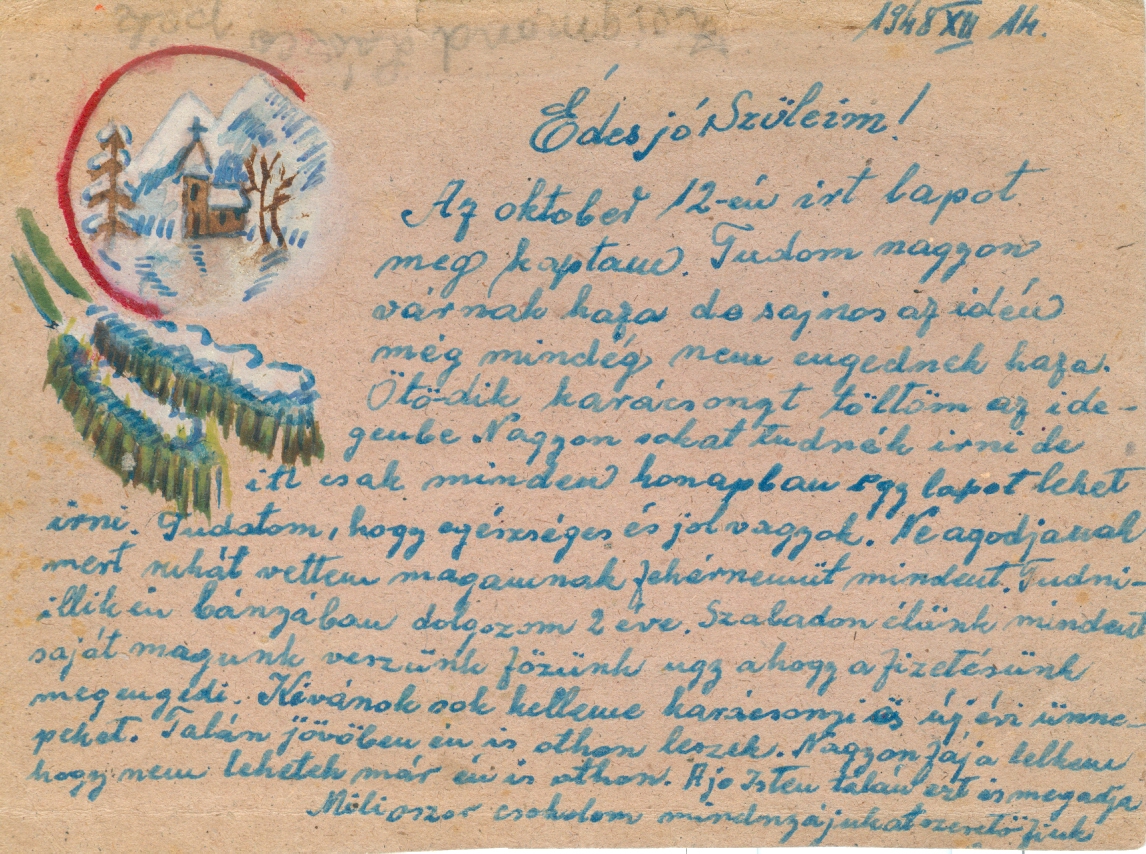 1948 XII 14.
Édes jó Szüleim!
Az oktober 12-én irt lapot
meg kaptam. Tudom nagyon
várnak haza de sajnos az idén
még mindég nem engednek haza.
Ötödik karácsonyt töltöm az ide-
genbe Nagyon sokat tudnék irni de
itt csak minden honapban egy lapot lehet
irni. Tudatom, hogy egészséges és jol vagyok. Ne agodjanak
mert ruhát vettem magamnak fehérnemüt mindent. Tudni-
illik én bányában dolgozom 2 éve. Szabadon élünk mindent
saját magunk veszünk főzünk ugy ahogy a fizetésünk
megengedi. Kévánok sok kelleme karácsonyi és új évi ünne-
peket. Talán jövöben én is othon leszek. Nagyon fáj a lelkem
hogy nem lehetek már én is othon. A jo Isten talán ezt is megadja
Milioszor csokolom mindnyájukat szerető fiuk